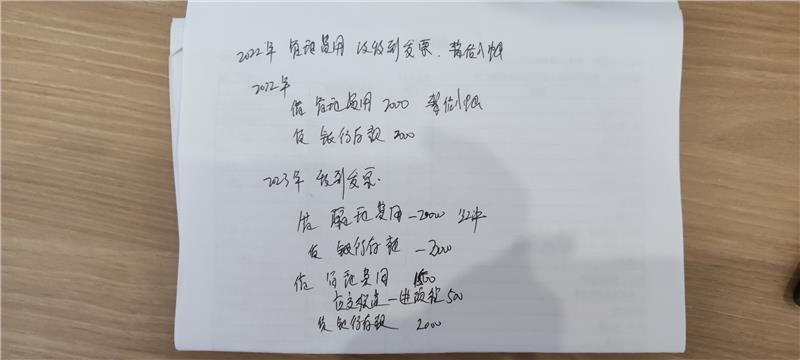 2022年 管理费用 没收到发票. 暂估入账
2022年
借 管理费用 2000 暂估入账
贷 银行存款 2000
2023年 收到发票.
借 管理费用 -2000 红冲
贷 银行存款 -2000
借 管理费用 1500
应交税费-进项税 500
贷 银行存款 2000